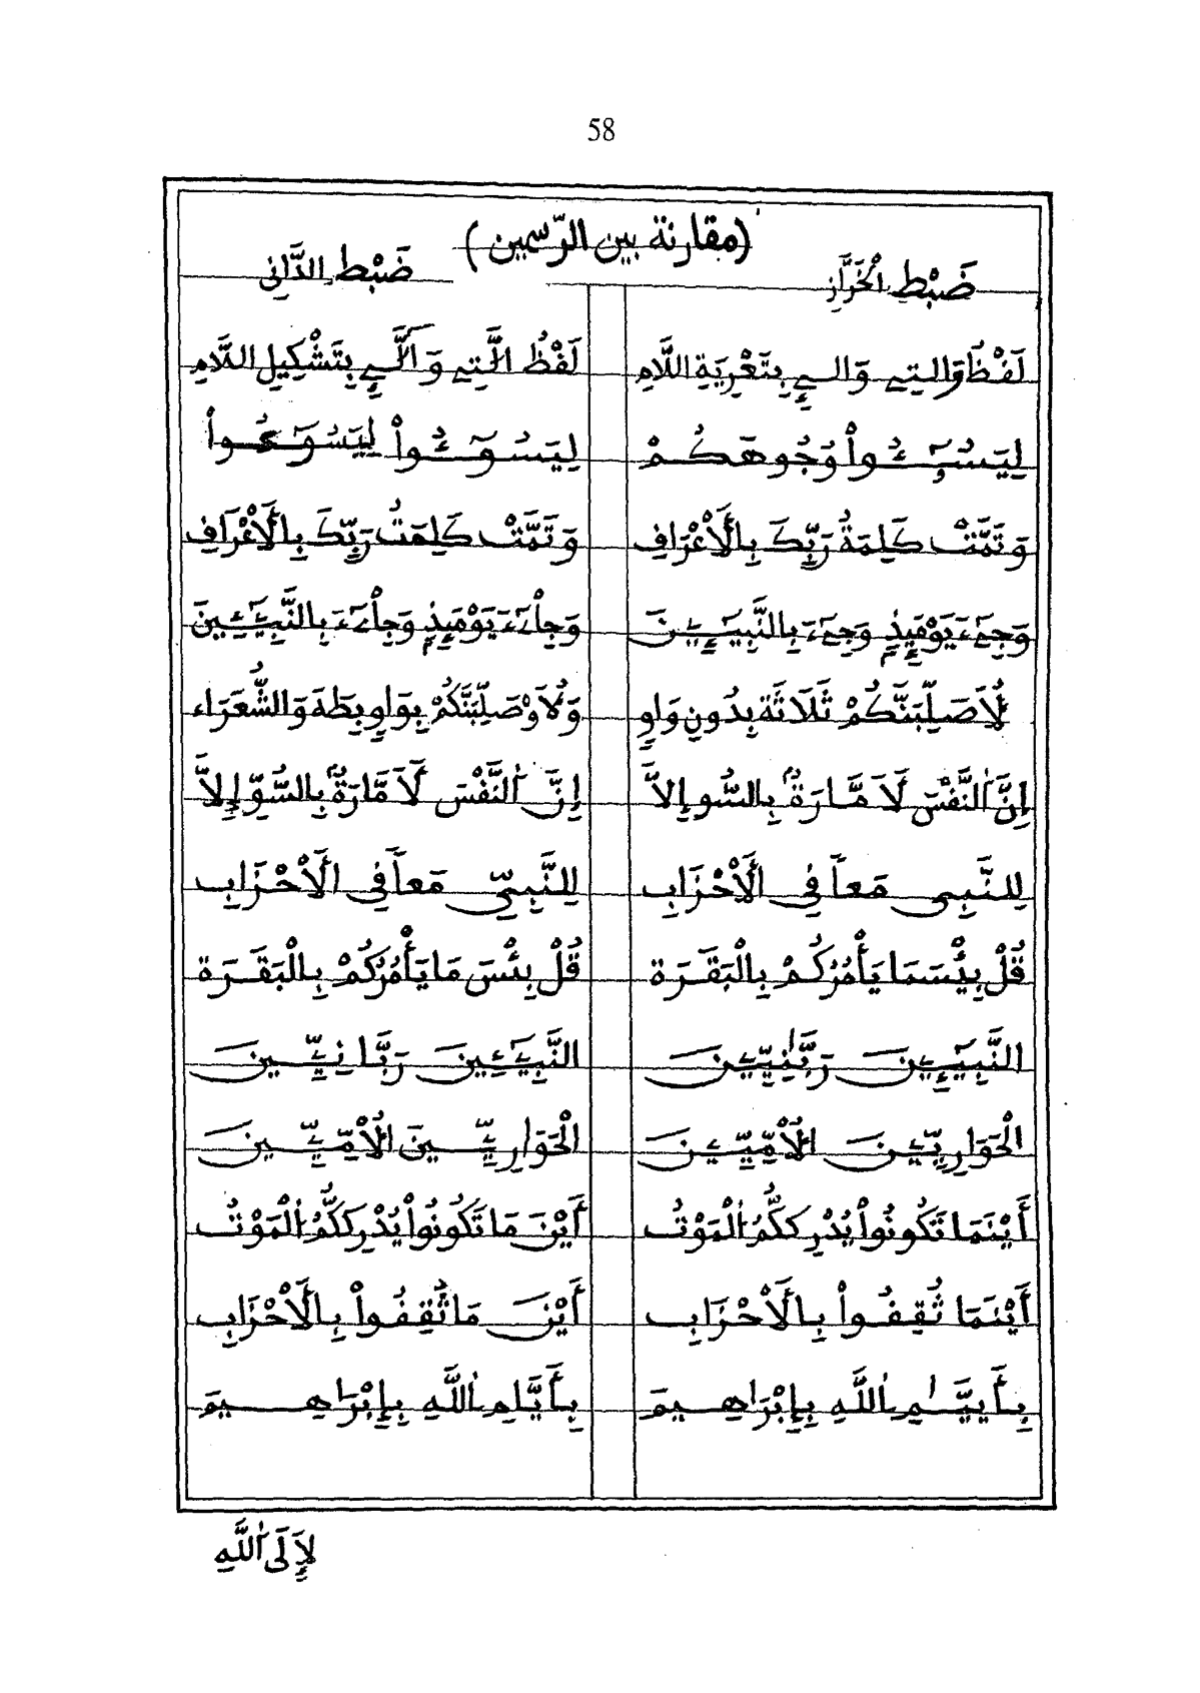 58
(مقارنة بين الرّسمين)
ضَبْط الْخَرَّازِ ضَبْط الدَّانِى
لَفْظُ وَالتِے وَالےِ بِتَعْرِيَةِ اللَّامِ لَفْظُ الَّتِے وَ الَّےِ بِتَشْكِيلِ اللَّامِ
لِيَسُـۥٓـُٔواْ وُجُوهَكُمْ لِيَسُوٓـُٔواْ لِيَسُوٓءُواْ
وَتَمَّتْ كَلِمَةُ رَبِّكَ بِالْأَعْرَافِ وَتَمَّتْ كَلِمَتُ رَبِّكَ بِالْأَعْرَافِ
وَجِےٓءَ يَوْمَئِذٍ وَجِےٓءَ بِالنَّبِيٓـِٕينَ وَجِاْےٓءَ يَوْمَئِذٍ وَجِاْےٓءَ بِالنَّبِيٓـِٕينَ
لُأَصَلِّبَنَّكُمْ ثَلَاثَة بِدُونِ وَاوٍ وَلُأَوْصَلِّبَنَّكُمْ بِوَاوٍ بِطَهَ وَالشُّعَرَاء
إِنَّ اَ۬لنَّفْسَ لَأَمَّارَةُۢ بِالسُّوِ إِلاَّ إِنَّ اَ۬لنَّفْسَ لَأَمَّارَةُۢ بِالسُّوِّ إِلاَّ
لِلنَّبِى مَعاً فِي الْأَحْزَابِ لِلنَّبِىِّ مَعاً فِي الْأَحْزَابِ
قُلْ بِئْسَمَا يَأْمُرُكُمْ بِالْبَقَرَة قُلْ بِئْسَ مَا يَأْمُرُكُمْ بِالْبَقَرَة
النَّبِيٓـِٕينَ رَبَّٰنِيِّـينَ النَّبِيٓـِٕينَ رَبَّانِيِّينَ
الْحَوَارِيِّـينَ الْأُمِّيِّـينَ الْحَوَارِيِّينَ الْأُمِّيِّينَ
أَيْنَمَا تَكُونُواْ يُدْرِككُّمُ اُ۬لْمَوْتُ أَيْنَ مَا تَكُونُواْ يُدْرِككُّمُ اُ۬لْمَوْتُ
أَيْنَمَا ثُقِفُواْ بِالْأَحْزَابِ أَيْنَ مَا ثُقِفُواْ بِالْأَحْزَابِ
بِأَييَّٰمِ اِ۬للَّهِ بِإِبْرَاهِيمَ بِأَيَّامِ اِ۬للَّهِ بِإِبْرَاهِيمَ
لَإِلَى اَ۬للَّهِ